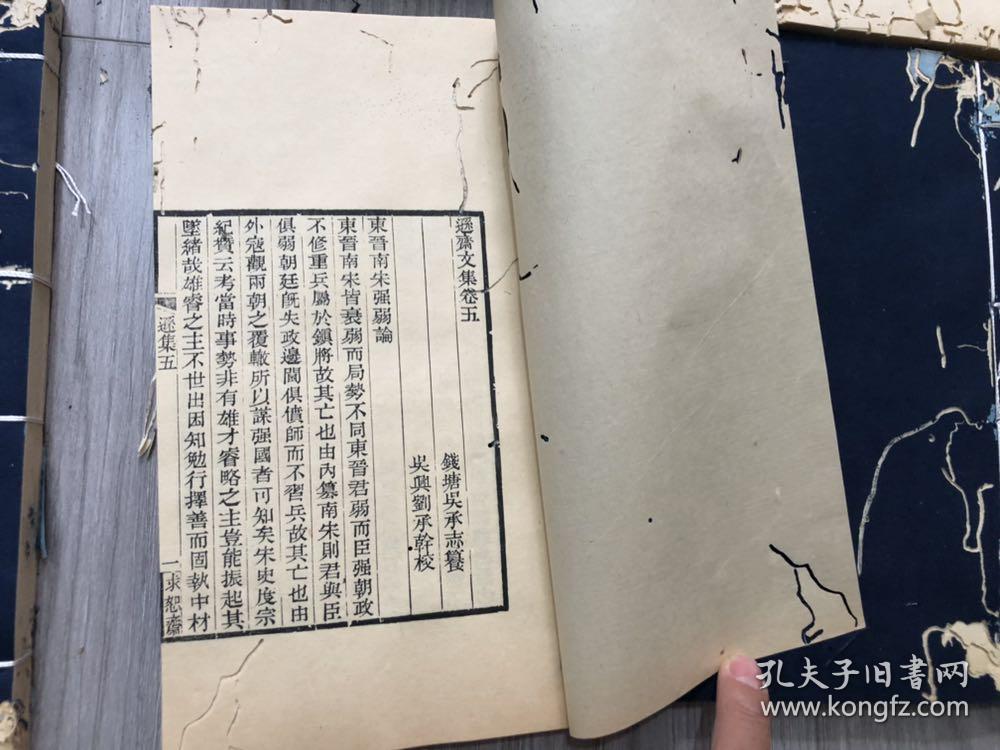 遜齋文集卷五
錢塘吳承志纂
吳興劉承幹校
東晉南宋强弱論
東晉南宋皆衰弱而局勢不同東晉君弱而臣强朝政
不修重兵屬於鎭將故其亡也由內篡南宋則君與臣
俱弱朝廷旣失政邊閫俱僨師而不習兵故其亡也由
外寇觀兩朝之覆轍所以謀强國者可知矣宋史度宗
紀贊云考當時事勢非有雄才睿略之主豈能振起其
墜緒哉雄睿之主不世出困知勉行擇善而固執中材
遜集五
一
求恕齋
孔夫子旧书网
www.kongfz.com